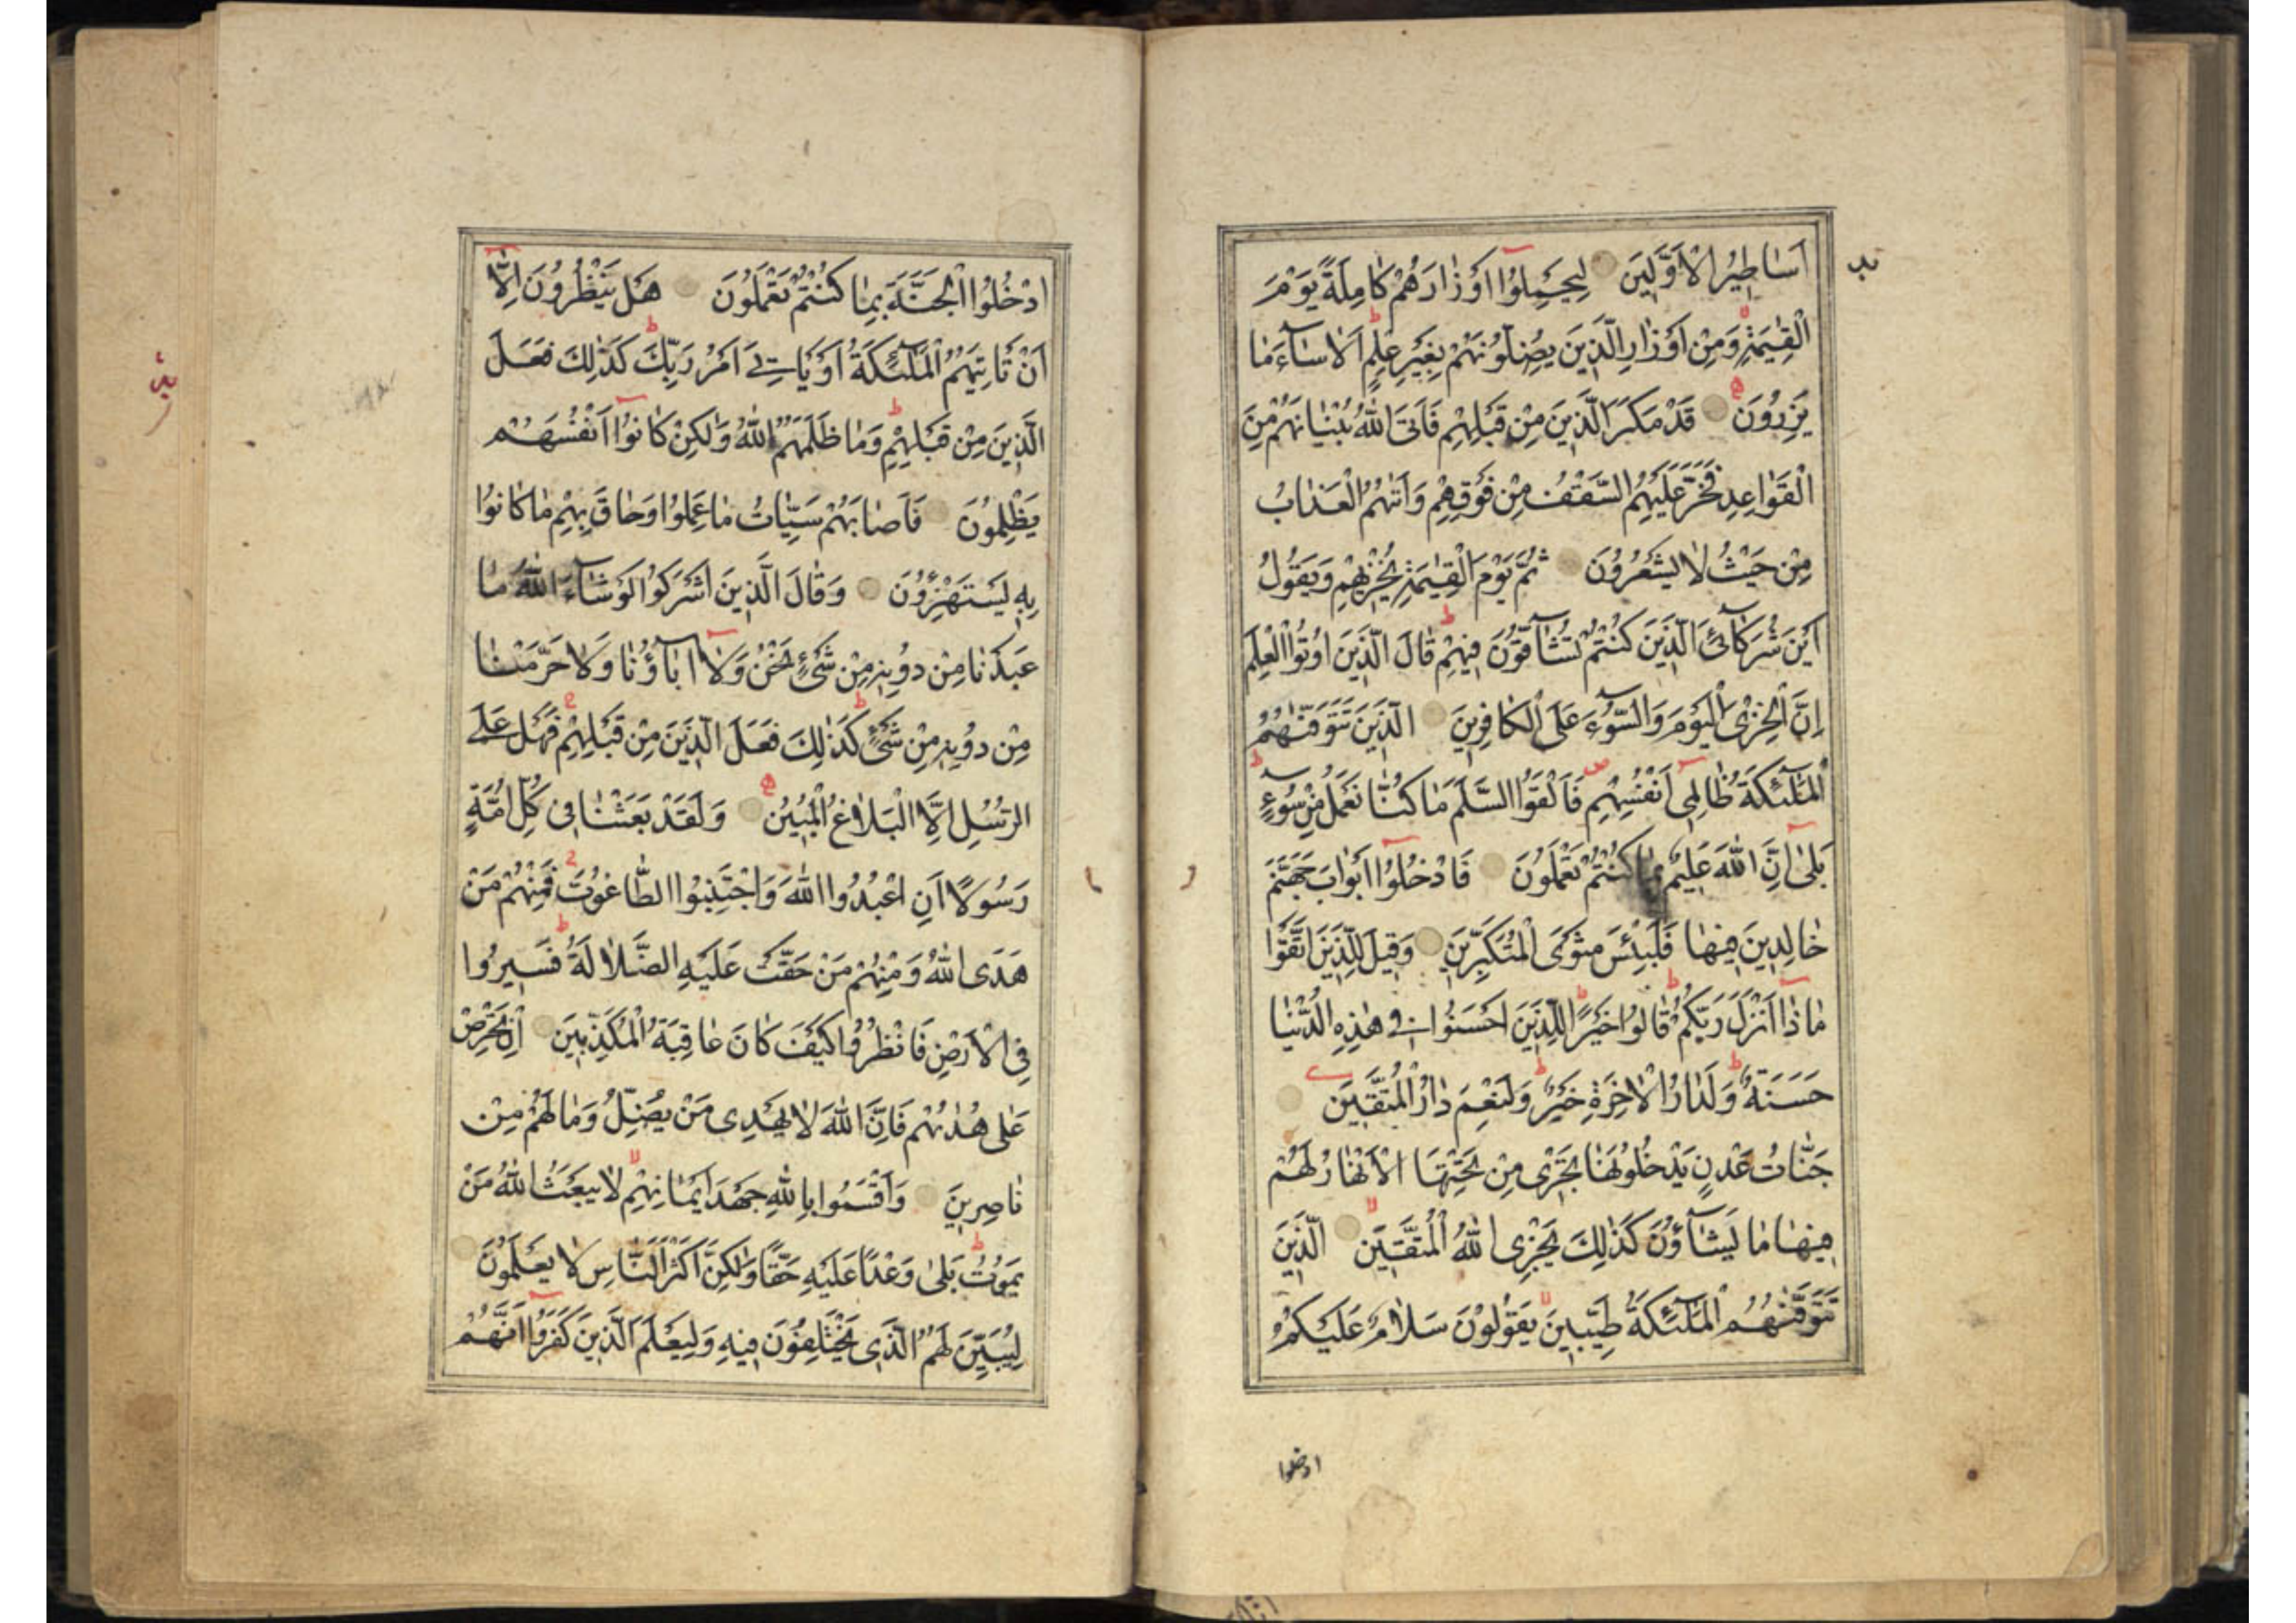 اَسٰاطٖيرُ الْاَوَّلٖينَ لِيَحْمِلُٓوا اَوْزٰارَهُمْ كٰامِلَةً يَوْمَ
الْقِيٰمَةِ وَمِنْ اَوْزٰارِ الَّذٖينَ يُضِلُّونَهُمْ بِغَيْرِ عِلْمٍ اَلٰا سٰٓاءَ مٰا
يَزِرُونَ قَدْ مَكَرَ الَّذٖينَ مِنْ قَبْلِهِمْ فَاَتَى اللّٰهُ بُنْيٰانَهُمْ مِنَ
الْقَوٰاعِدِ فَخَرَّ عَلَيْهِمُ السَّقْفُ مِنْ فَوْقِهِمْ وَاَتٰىهُمُ الْعَذٰابُ
مِنْ حَيْثُ لٰا يَشْعُرُونَ ثُمَّ يَوْمَ الْقِيٰمَةِ يُخْزٖيهِمْ وَيَقُولُ
اَيْنَ شُرَكٰٓائِيَ الَّذٖينَ كُنْتُمْ تُشٰٓاقُّونَ فٖيهِمْ قٰالَ الَّذٖينَ اُوتُوا الْعِلْمَ
اِنَّ الْخِزْيَ الْيَوْمَ وَالسُّٓوءَ عَلَى الْكٰافِرٖينَ الَّذٖينَ تَتَوَفّٰىهُمُ
الْمَلٰٓئِكَةُ ظٰالِمٖٓي اَنْفُسِهِمْ فَاَلْقَوُا السَّلَمَ مٰا كُنّٰا نَعْمَلُ مِنْ سُٓوءٍ
بَلٰٓى اِنَّ اللّٰهَ عَلٖيمٌ بِمٰا كُنْتُمْ تَعْمَلُونَ فَادْخُلُٓوا اَبْوٰابَ جَهَنَّمَ
خٰالِدٖينَ فٖيهٰا فَلَبِئْسَ مَثْوَى الْمُتَكَبِّرٖينَ وَقٖيلَ لِلَّذٖينَ اتَّقَوْا
مٰاذٰٓا اَنْزَلَ رَبُّكُمْ قٰالُوا خَيْرًا لِلَّذٖينَ اَحْسَنُوا فٖي هٰذِهِ الدُّنْيٰا
حَسَنَةٌ وَلَدٰارُ الْاٰخِرَةِ خَيْرٌ وَلَنِعْمَ دٰارُ الْمُتَّقٖينَ
جَنّٰاتُ عَدْنٍ يَدْخُلُونَهٰا تَجْرٖي مِنْ تَحْتِهَا الْاَنْهٰارُ لَهُمْ
فٖيهٰا مٰا يَشٰٓاؤُنَ كَذٰلِكَ يَجْزِي اللّٰهُ الْمُتَّقٖينَ الَّذٖينَ
تَتَوَفّٰىهُمُ الْمَلٰٓئِكَةُ طَيِّبٖينَ يَقُولُونَ سَلٰامٌ عَلَيْكُمُ
ادخلوا
ادْخُلُوا الْجَنَّةَ بِمٰا كُنْتُمْ تَعْمَلُونَ هَلْ يَنْظُرُونَ اِلّٰٓا
اَنْ تَأْتِيَهُمُ الْمَلٰٓئِكَةُ اَوْ يَأْتِيَ اَمْرُ رَبِّكَ كَذٰلِكَ فَعَلَ
الَّذٖينَ مِنْ قَبْلِهِمْ وَمٰا ظَلَمَهُمُ اللّٰهُ وَلٰكِنْ كٰانُٓوا اَنْفُسَهُمْ
يَظْلِمُونَ فَاَصٰابَهُمْ سَيِّئٰاتُ مٰا عَمِلُوا وَحٰاقَ بِهِمْ مٰا كٰانُوا
بِهٖ يَسْتَهْزِؤُنَ وَقٰالَ الَّذٖينَ اَشْرَكُوا لَوْ شٰٓاءَ اللّٰهُ مٰا
عَبَدْنٰا مِنْ دُونِهٖ مِنْ شَيْءٍ نَحْنُ وَلٰٓا اٰبٰٓاؤُنٰا وَلٰا حَرَّمْنٰا
مِنْ دُونِهٖ مِنْ شَيْءٍ كَذٰلِكَ فَعَلَ الَّذٖينَ مِنْ قَبْلِهِمْ فَهَلْ عَلَى
الرُّسُلِ اِلَّا الْبَلٰاغُ الْمُبٖينُ وَلَقَدْ بَعَثْنٰا فٖي كُلِّ اُمَّةٍ
رَسُولًا اَنِ اعْبُدُوا اللّٰهَ وَاجْتَنِبُوا الطّٰاغُوتَ فَمِنْهُمْ مَنْ
هَدَى اللّٰهُ وَمِنْهُمْ مَنْ حَقَّتْ عَلَيْهِ الضَّلٰالَةُ فَسٖيرُوا
فِي الْاَرْضِ فَانْظُرُوا كَيْفَ كٰانَ عٰاقِبَةُ الْمُكَذِّبٖينَ اِنْ تَحْرِصْ
عَلٰى هُدٰىهُمْ فَاِنَّ اللّٰهَ لٰا يَهْدٖي مَنْ يُضِلُّ وَمٰا لَهُمْ مِنْ
نٰاصِرٖينَ وَاَقْسَمُوا بِاللّٰهِ جَهْدَ اَيْمٰانِهِمْ لٰا يَبْعَثُ اللّٰهُ مَنْ
يَمُوتُ بَلٰى وَعْدًا عَلَيْهِ حَقًّا وَلٰكِنَّ اَكْثَرَ النّٰاسِ لٰا يَعْلَمُونَ
لِيُبَيِّنَ لَهُمُ الَّذٖي يَخْتَلِفُونَ فٖيهِ وَلِيَعْلَمَ الَّذٖينَ كَفَرُٓوا اَنَّهُمْ